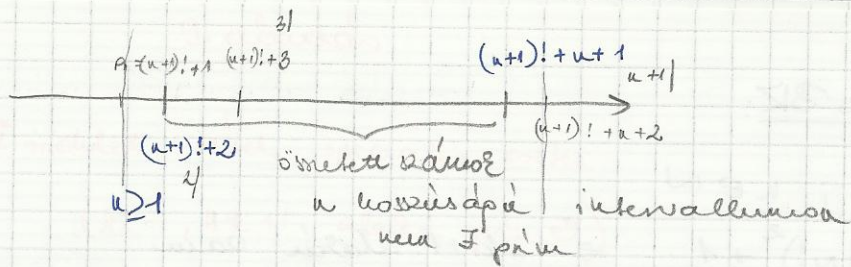 3|
p=(n+1)!+1 (n+1)!+3 (n+1)!+n+1 n+1|
(n+1)!+2 (n+1)!+n+2
2|
összetett számok
n≥1 n hosszúságú intervallumon
nem ∃ prím